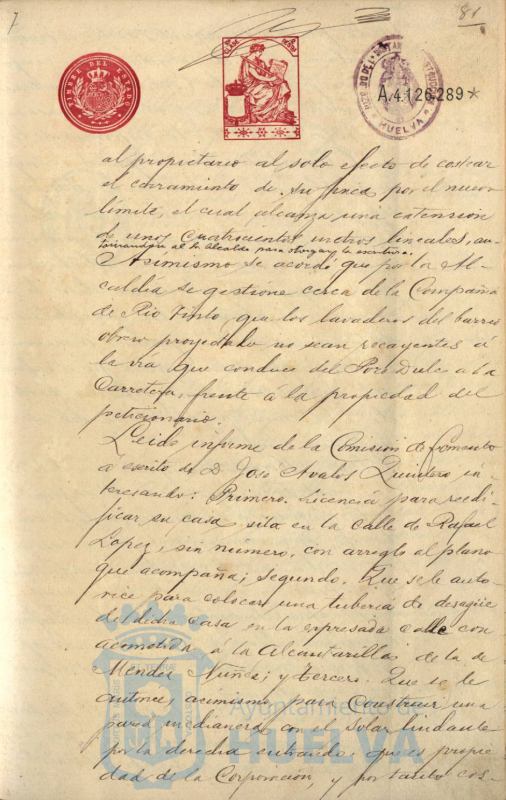 7
81
TIMBRE DEL ESTADO
A.4.126.289*
HUELVA
al propietario al solo efecto de costear
el cerramiento de su finca por el nuevo
límite, el cual alcanza una extension
de unos cuatrocientos metros lineales, au-
torizandose al Sr Alcalde para otorgar la escritura.
Asimismo se acordó que por la Al-
caldía se gestione cerca de la Compañia
de Rio Tinto, que los lavaderos del barrio
obrero proyectado no sean recayentes á
la via que conduce del Pozo Dulce a la
Carretera, frente á la propiedad del
peticionario.
Leido informe de la Comision de Fomento
á escrito de D. José Avalos Quintero in-
teresando: Primero. Licencia para reedi-
ficar su casa, sita en la calle de Rafael
Lopez, sin número, con arreglo al plano
que acompaña; segundo. Que se le auto-
rice para colocar una tuberia de desagüe
de dicha casa en la expresada calle con
acometida á la Alcantarilla de la de
Mendez Nuñez; y tercero. Que se le
autorice asimismo para construir una
pared medianera con el solar lindante
por la derecha entrando, que es propie-
dad de la Corporación, y por tanto cos-
Ayuntamiento de
HUELVA